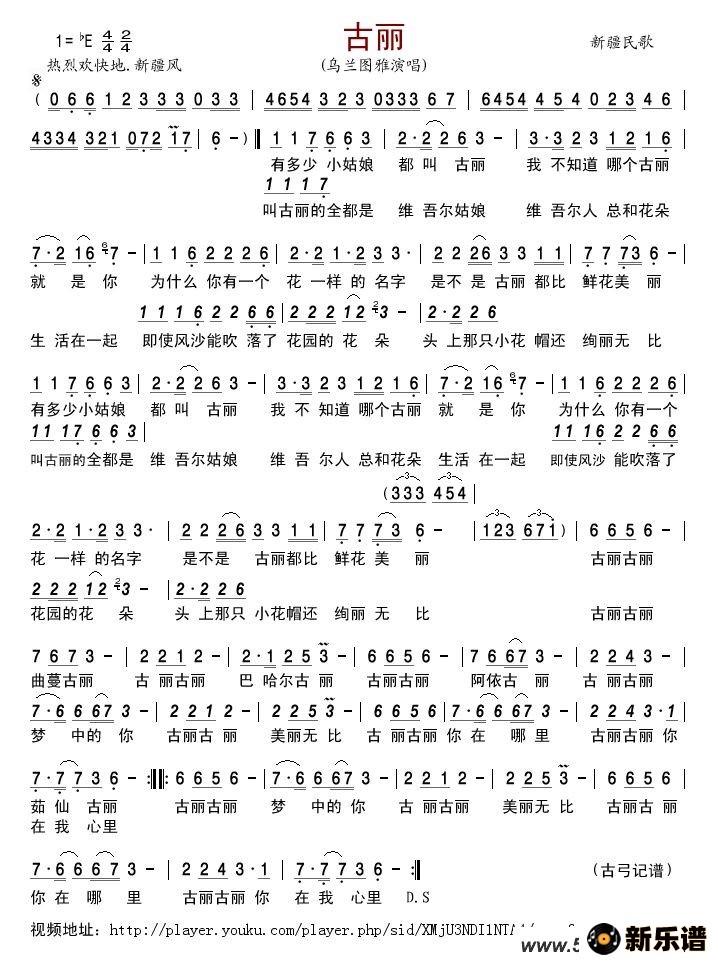 古丽
1=♭E 4/4 2/4
新疆民歌
热烈欢快地.新疆风
(乌兰图雅演唱)
(0 6·6 1 2 3 3 3 0 3 3 | 4654 323 0333 6 7 | 6454 5 4 0 2 3 4 6 |
4334 321 072 17 | 6 - )‖ 1 1 7 6 6 3 | 2·2 2 6 3 - | 3·3 2 3 1 2 1 6 |
有多少 小姑娘 都 叫 古丽 我 不知道 哪个古丽
1 1 1 7
叫古丽的全都是 维 吾尔姑娘 维 吾尔人 总和花朵
7·2 16 67 - | 1 1 6 2 2 2 6 | 2·2 1·2 3 3 | 2 2 26 3 3 1 1 | 7 7 73 6 - |
就 是 你 为什么 你有一个 花 一样 的 名字 是不 是 古丽 都比 鲜花美 丽
1 1 1 6 2 2 6 6 | 2 2 2 12 23 - | 2·2 2 6
生 活在一起 即使风沙能吹 落了 花园的 花 朵 头 上那只小花 帽还 绚丽无 比
1 1 7 6 6 3 | 2·2 2 6 3 - | 3·3 2 3 1 2 1 6 | 7·2 16 67 - | 1 1 6 2 2 2 6 |
有多少小姑娘 都 叫 古丽 我 不 知道 哪个古丽 就 是 你 为什么 你有一个
1 1 1 7 6 6 3 | 1 1 1 6 2 2 6 6 |
叫古丽的全都是 维 吾尔姑娘 维 吾 尔人 总和花朵 生活 在一起 即使风沙 能吹落了
(333 454 |
2·2 1·2 3 3· | 2 2 26 3 3 1 1 | 7 7 73 6 - | 123 671) | 6 6 5 6 - |
花 一样 的名字 是不是 古丽都比 鲜花 美 丽 古丽古丽
2 2 2 12 23 - | 2·2 2 6
花园的花 朵 头 上那只 小花帽还 绚丽 无 比 古丽古丽
7 6 7 3 - | 2 2 1 2 - | 2·1 2 2 5 3 | 6 6 5 6 - | 7 6 67 3 - | 2 2 4 3 - |
曲蔓古丽 古 丽古丽 巴 哈尔古 丽 古丽古丽 阿依古 丽 古 丽古丽
7·6 6 67 3 - | 2 2 1 2 - | 2 2 5 3 - | 6 6 5 6 - | 7·6 6 67 3 - | 2 2 4 3·1 |
梦 中的 你 古丽古 丽 美丽无 比 古丽古 丽 你 在 哪 里 古丽古丽 你
7·7 73 6 - :‖: 6 6 5 6 - | 7·6 6 67 3 - | 2 2 1 2 - | 2 2 5 3 - | 6 6 5 6 - |
茹 仙 古丽 古丽古丽 梦 中的 你 古 丽古丽 美丽无 比 古丽古 丽
在 我 心里
7·6 6 67 3 - | 2 2 4 3·1 | 7·7 73 6 - :‖ (古弓记谱)
你 在 哪 里 古丽古丽 你 在 我 心里 D.S
视频地址: http://player.youku.com/player.php/sid/XMjU3NDI1NTA
www.5
新乐谱